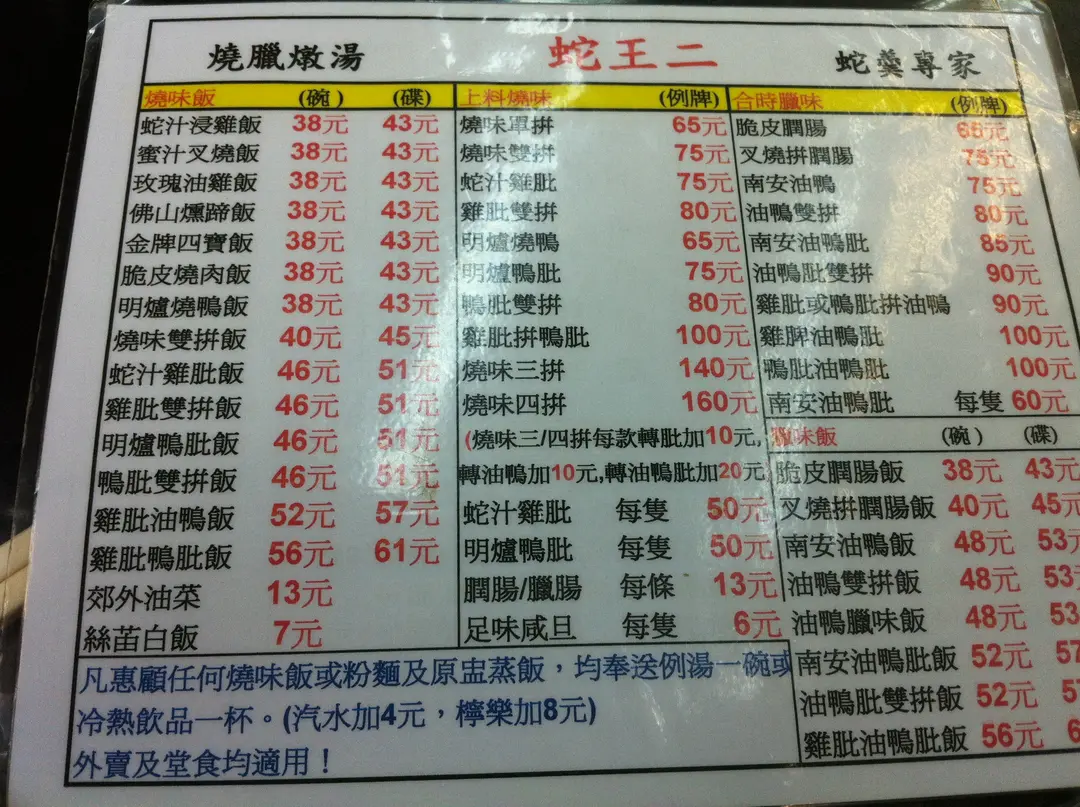 燒臘燉湯 蛇王二 蛇羹專家
燒味飯 (碗) (碟)
蛇汁浸雞飯 38元 43元
蜜汁叉燒飯 38元 43元
玫瑰油雞飯 38元 43元
佛山燻蹄飯 38元 43元
金牌四寶飯 38元 43元
脆皮燒肉飯 38元 43元
明爐燒鴨飯 38元 43元
燒味雙拚飯 40元 45元
蛇汁雞肶飯 46元 51元
雞肶雙拚飯 46元 51元
明爐鴨肶飯 46元 51元
鴨肶雙拚飯 46元 51元
雞肶油鴨飯 52元 57元
雞肶鴨肶飯 56元 61元
郊外油菜 13元
絲苗白飯 7元
上料燒味 (例牌)
燒味單拚 65元
燒味雙拚 75元
蛇汁雞肶 75元
雞肶雙拚 80元
明爐燒鴨 65元
明爐鴨肶 75元
鴨肶雙拚 80元
雞肶拚鴨肶 100元
燒味三拚 140元
燒味四拚 160元
(燒味三/四拚每款轉肶加10元,
轉油鴨加10元,轉油鴨肶加20元
蛇汁雞肶 每隻 50元
明爐鴨肶 每隻 50元
潤腸/臘腸 每條 13元
足味咸旦 每隻 6元
合時臘味 (例牌)
脆皮潤腸 元
叉燒拚潤腸 75元
南安油鴨 75元
油鴨雙拚 80元
南安油鴨肶 85元
油鴨肶雙拚 90元
雞肶或鴨肶拚油鴨 90元
雞脾油鴨肶 100元
鴨肶油鴨肶 100元
南安油鴨肶 每隻 60元
臘味飯 (碗) (碟)
脆皮潤腸飯 38元 43元
叉燒拚潤腸飯 40元 45元
南安油鴨飯 48元 53元
油鴨雙拚飯 48元 53
油鴨臘味飯 48元 53
南安油鴨肶飯 52元 57
油鴨肶雙拚飯 52元
雞肶油鴨肶飯 56元
凡惠顧任何燒味飯或粉麵及原盅蒸飯，均奉送例湯一碗或
冷熱飲品一杯。(汽水加4元，檸樂加8元)
外賣及堂食均適用！